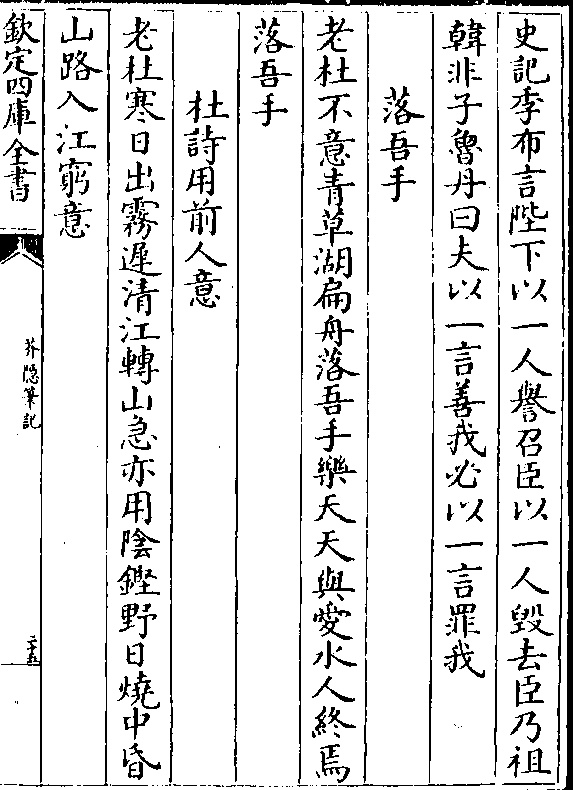 史記季布言陛下以一人譽召臣以一人毀去臣乃祖
韓非子魯丹曰夫以一言善我必以一言罪我
落吾手
老杜不意青草湖扁舟落吾手樂天天與愛水人終焉
落吾手
杜詩用前人意
老杜寒日出霧遲清江轉山急亦用陰鏗野日燒中昏
山路入江窮意
欽定四庫全書
芥隱筆記
二十五